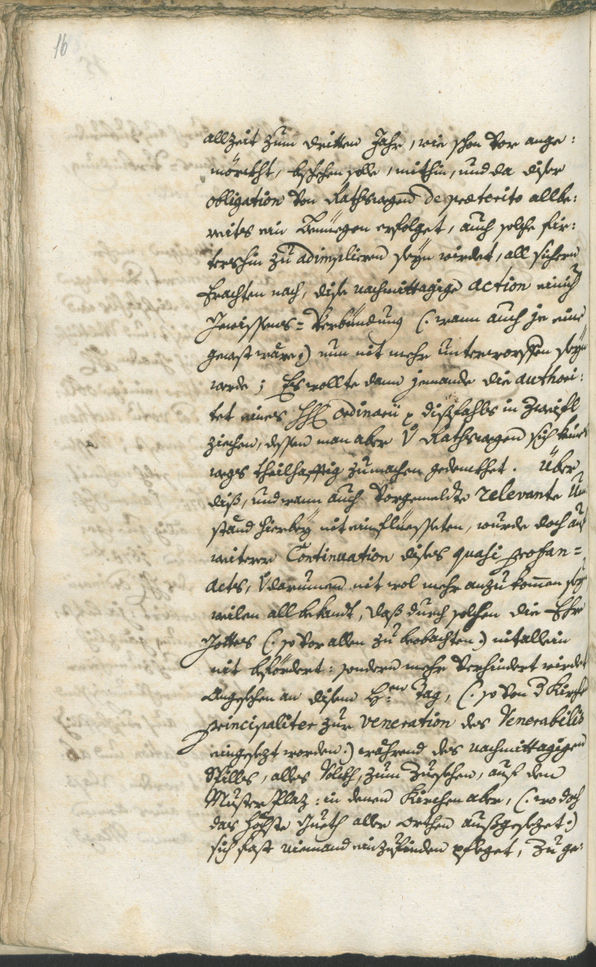 16
allzeit zum dritten Jahr, wie schon vor ange:
möreckht, beschehen solle, mithin, und da diser
obligation von Rathswegen de præterito allbe:
reites ein benüegen erfolget, auch solche für:
terhin zu adimplieren seyn würdet, all sichern
Erachten nach, dise nachmittagige action einich
Gewissens=Verbündung (: wann auch je eine
gewest wäre :) nun nit mehr unterworffen seyn
werde; Es wollte dann jemande die authori:
tet eines ordinarii dißfahls in Zweifl
ziehen, dessen man aber Rathswegen sich keines
wegs theilhafftig zumachen gedenkhet. Über
diß, und wann auch vorgemeldte relevante Um
ständ hierbey nit einfluesseten, wurde doch auf
weitere Continuation dises quasi profan=
Acts, darumen nit wol mehr anzukommen sey
weilen allbekandt, daß durch solchen die Ehr
Gottes (: so vor allen zu beobachten :) nit allein
nit befördert: sondern mehr verhindert würdet
Angesehen an disem H: Tag, (: so von d Kirche
principaliter zur veneration des Venerabilis
eingesezt worden :) während des nachmittagigen
Spills, alles Volckh, zum Zusehen, auf dem
Muster Plaz: in denen Kirchen aber, (: wo doch
das höchste Gueth aller orthen außgesezet :)
sich fast niemand einzufinden pfleget, Zuge: